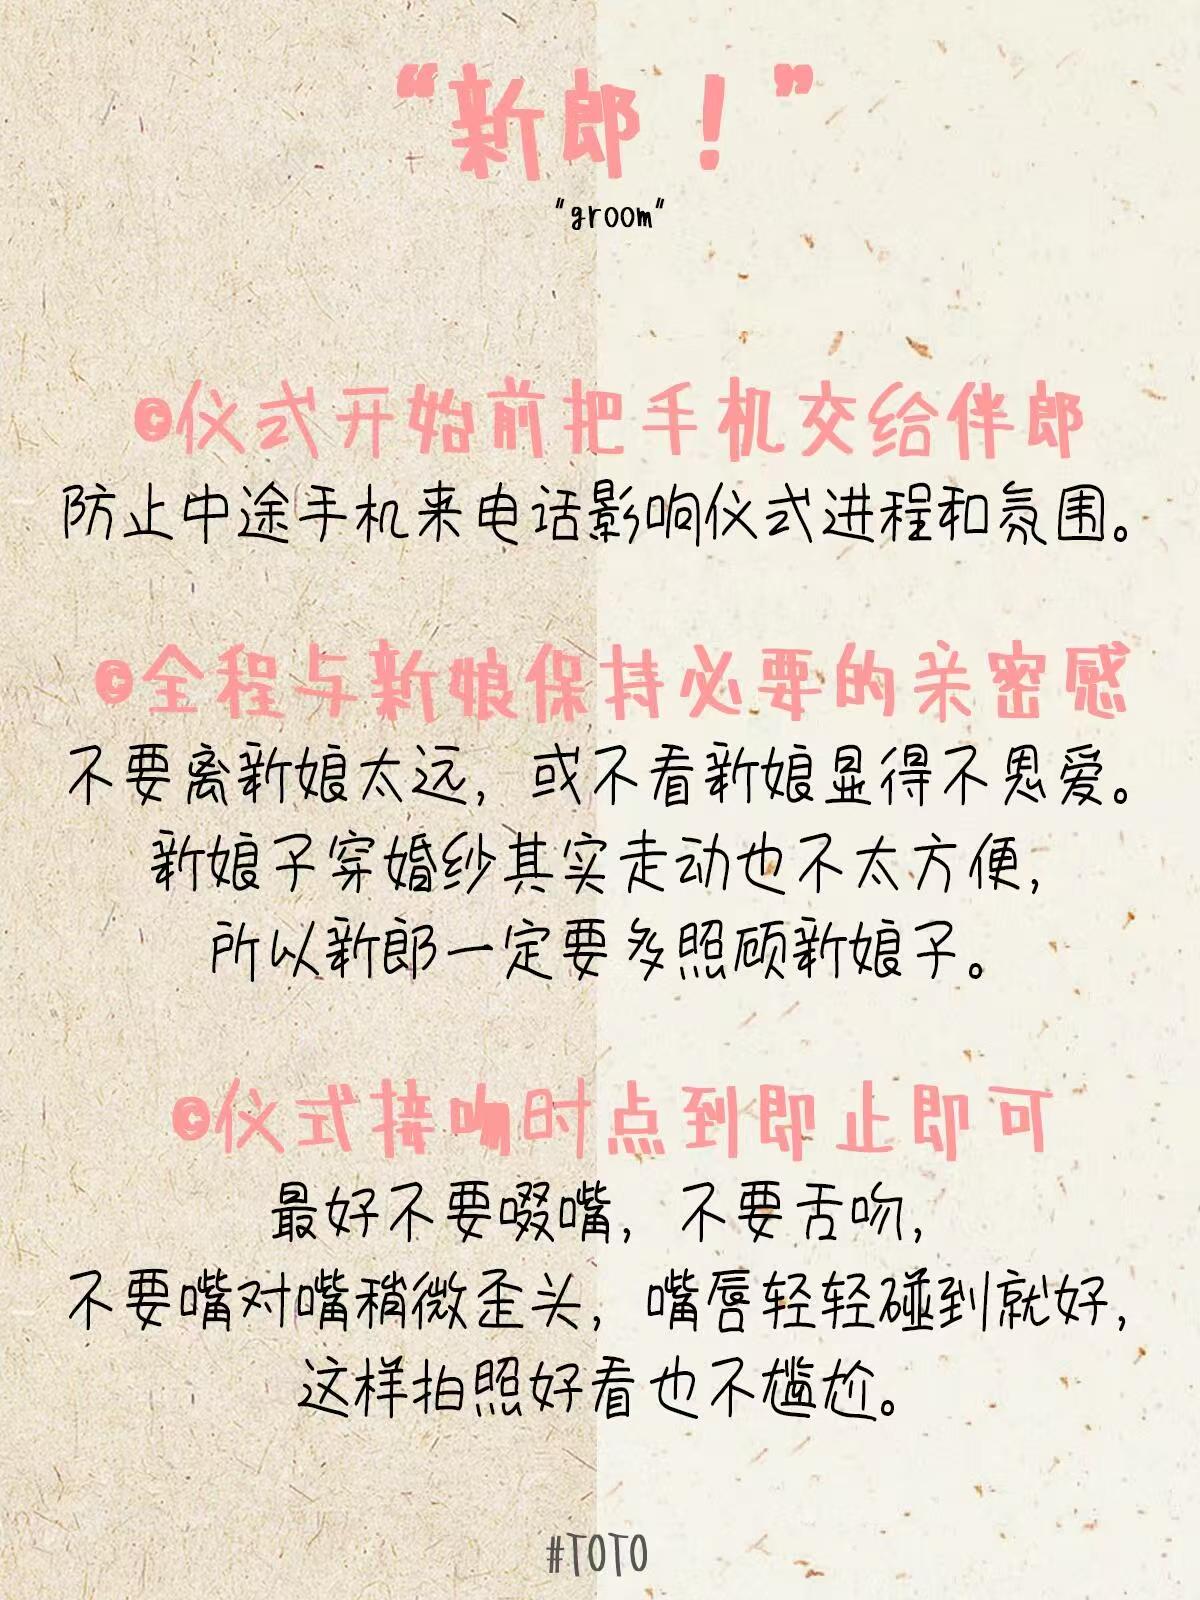 “新郎！”
"groom"
©仪式开始前把手机交给伴郎
防止中途手机来电话影响仪式进程和氛围。
©全程与新娘保持必要的亲密感
不要离新娘太远，或不看新娘显得不恩爱。
新娘子穿婚纱其实走动也不太方便，
所以新郎一定要多照顾新娘子。
©仪式接吻时点到即止即可
最好不要啜嘴，不要舌吻，
不要嘴对嘴稍微歪头，嘴唇轻轻碰到就好，
这样拍照好看也不尴尬。
#TOTO